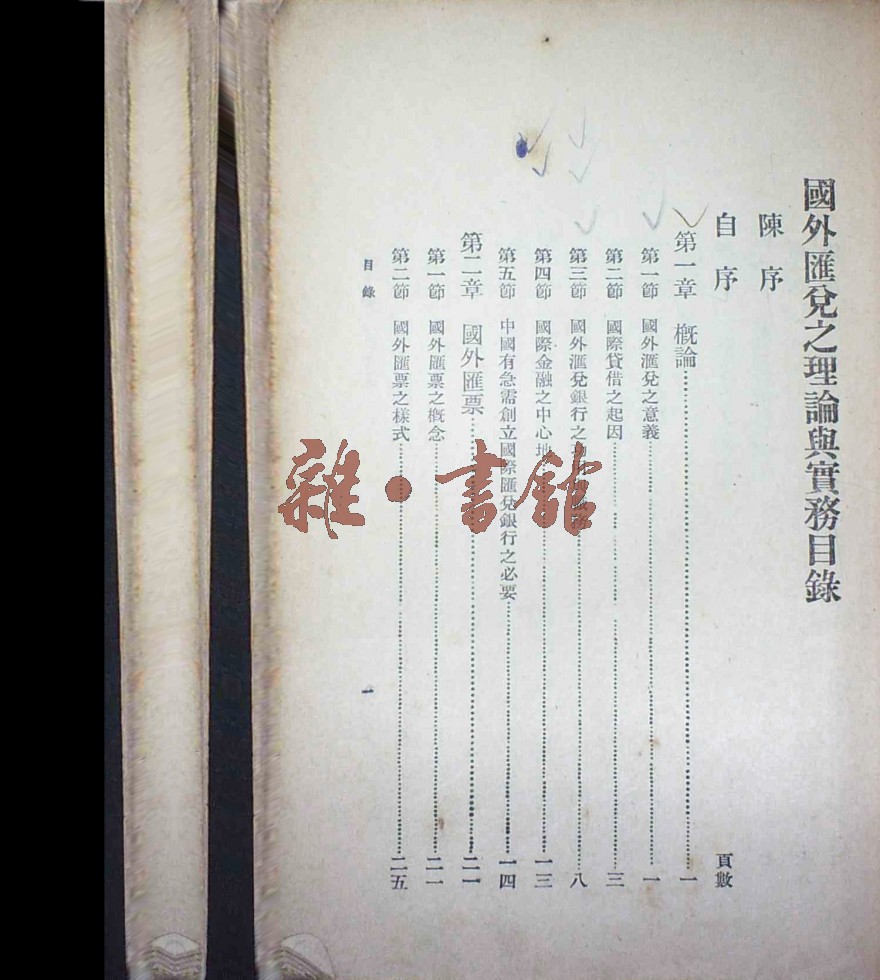 國外匯兌之理論與實務目錄
陳序
自序
頁數
第一章 概論 一
第一節 國外滙兌之意義 一
第二節 國際貸借之起因 三
第三節 國外滙兌銀行之 八
第四節 國際金融之中心地 一三
第五節 中國有急需創立國際匯兌銀行之必要 一四
第二章 國外匯票 二一
第一節 國外匯票之概念 二一
第二節 國外匯票之樣式 二五
目錄
一
雜·書館